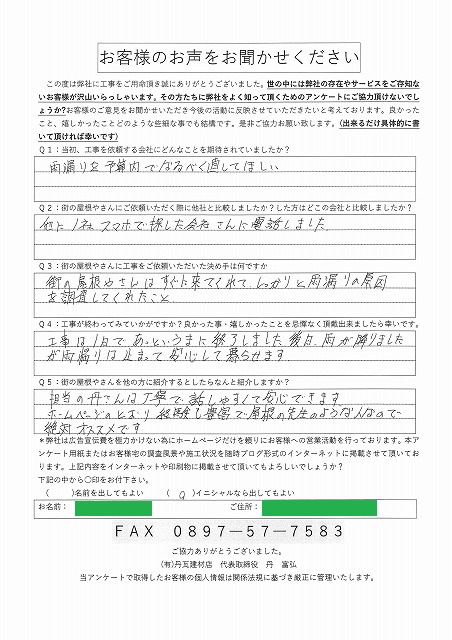 お客様のお声をお聞かせください
この度は弊社に工事をご用命頂き誠にありがとうございました。世の中には弊社の存在やサービスをご存知な
いお客様が沢山いらっしゃいます。その方たちに弊社をよく知って頂くためのアンケートにご協力頂けないでし
ょうか?お客様のご意見をお聞かせいただき今後の活動に反映させていただきたいと考えております。良かった
こと、嬉しかったことどのような些細な事でも結構です。是非ご協力お願い致します。（出来るだけ具体的に書
いて頂ければ幸いです）
Q１：当初、工事を依頼する会社にどんなことを期待されていましたか？
雨漏りを予算内でなるべく直してほしい
Q２：街の屋根やさんにご依頼いただく際に他社と比較しましたか？した方はどこの会社と比較しましたか？
他に1社 スマホで探した会社さんに電話しました
Q３：街の屋根やさんに工事をご依頼いただいた決め手は何ですか
街の屋根やさんはすぐに来てくれて、しっかりと雨漏りの原因
を調査してくれたこと
Q４：工事が終わってみていかがですか？良かった事・嬉しかったことを忌憚なく頂戴出来ましたら幸いです。
工事は1日で あっというまに 終了しました 後日、雨が降りました
が雨漏りは止まって安心して暮らせます
Q５：街の屋根やさんを他の方に紹介するとしたらなんと紹介しますか？
担当の丹さんは丁寧で 話しやすくて安心できます
ホームページのとおり 経験も豊富で屋根の先生のような人なので
絶対オススメです
＊弊社は広告宣伝費を極力かけない為にホームページだけを頼りにお客様への営業活動を行っております。本ア
ンケート用紙またはお客様宅の調査風景や施工状況を随時ブログ形式のインターネットに掲載させて頂いてお
ります。上記内容をインターネットや印刷物に掲載させて頂いてもよろしいでしょうか？
下記の中から〇印をお付下さい。
（　　）名前を出してもよい　（ ○ ）イニシャルなら出してもよい
お名前：　ご住所：
ＦＡＸ　０８９７－５７－７５８３
ご協力ありがとうございました。
(有)丹瓦建材店　代表取締役　丹　富弘
当アンケートで取得したお客様の個人情報は関係法規に基づき厳正に管理いたします。